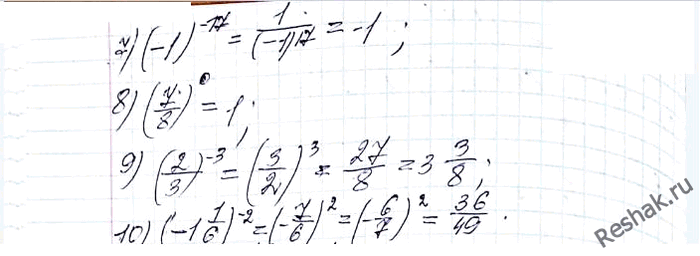 7) (-1)^{-17} = \frac{1}{(-1)17} = -1 ;
8) (\frac{7}{8})^0 = 1 ;
9) (\frac{2}{3})^{-3} = (\frac{3}{2})^3 = \frac{27}{8} = 3 \frac{3}{8} ;
10) (-1 \frac{1}{6})^{-2} = (-\frac{7}{6})^2 = (-\frac{6}{7})^2 = \frac{36}{49} .
Reshak.ru